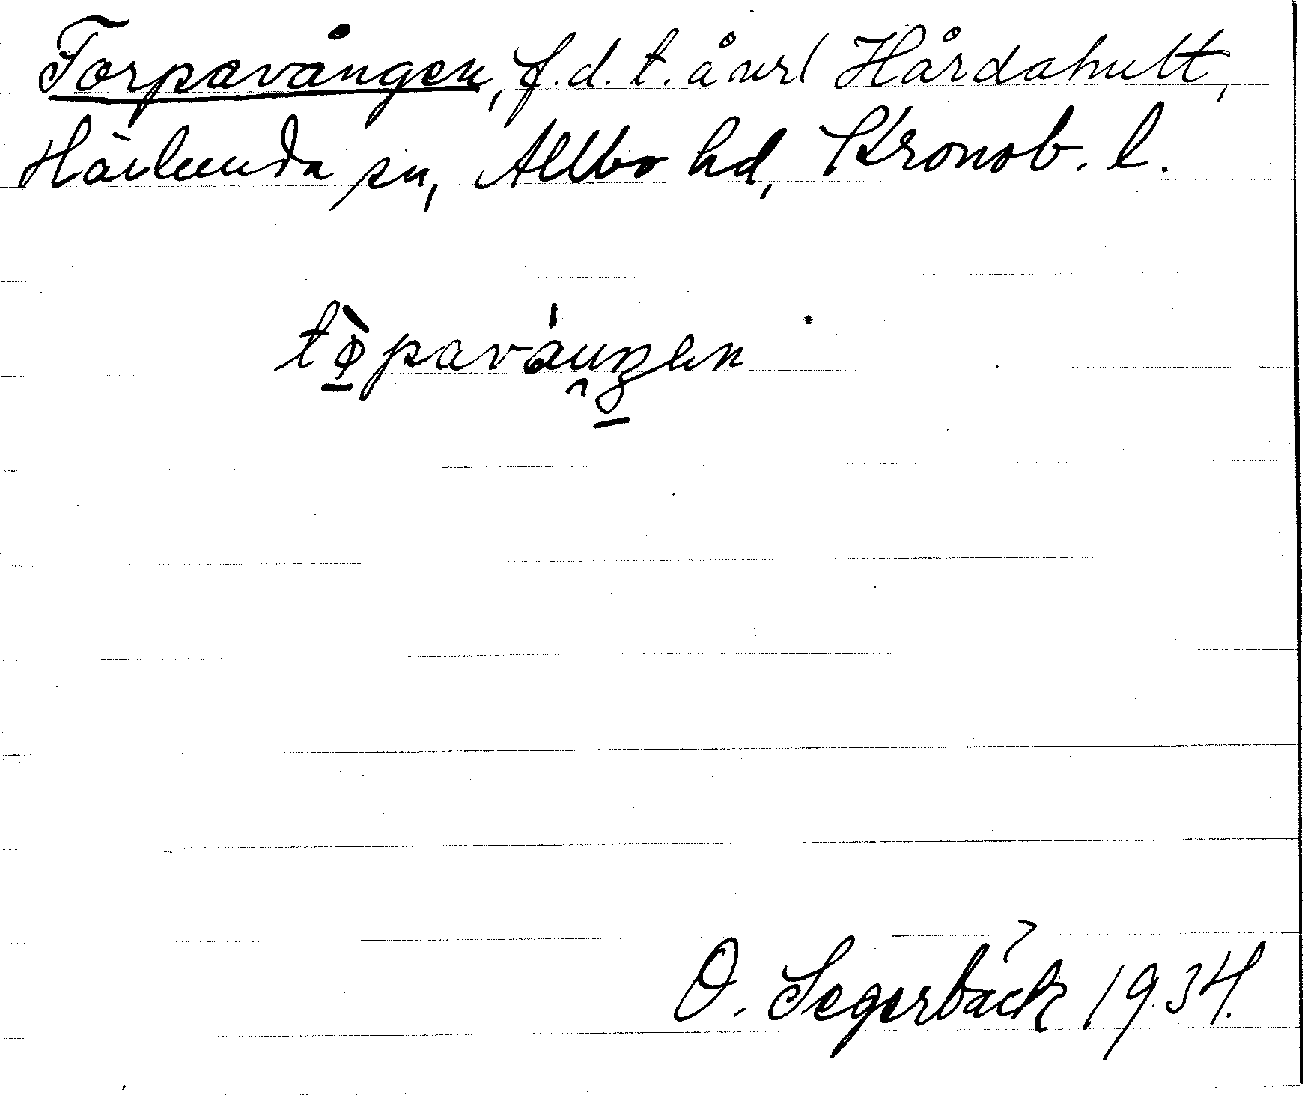 Torpavången, f.d. t. å url Hårdahult,
Härlunda sn, Allbo hd, Kronob. l.
tɵ̀paváŋgen
O. Segerbäck 1934.